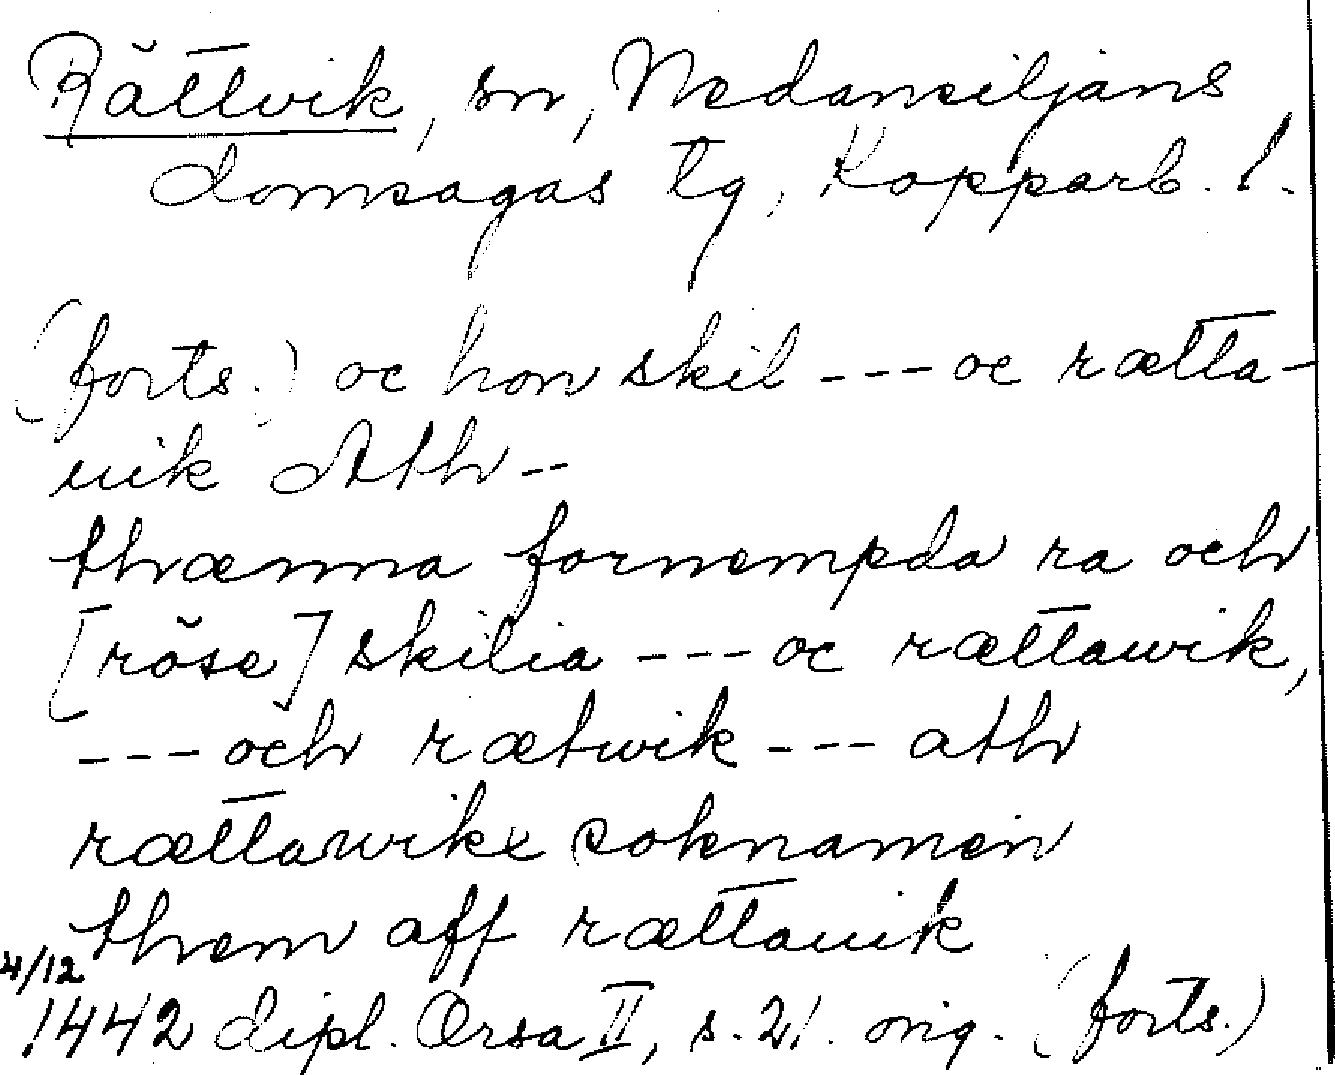 Rättvik, sn, Nedansiljans
domsagas tg, Kopparb. l.
(forts.) oc hon skil --- oc rætta-
uik Ath --
thænna fornempda ra och
[röse] skilia --- oc rættawik,
--- och rætwik --- ath
rættawikx soknamen
them aff rættauik
4/12
1442 dipl. Orsa II, s. 21. orig. (forts.)